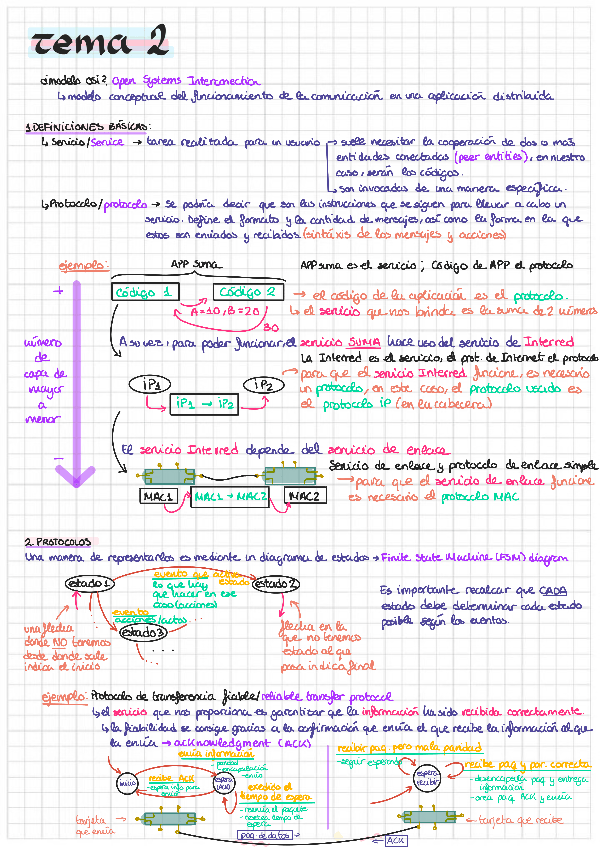 tema 2
¿modelo osi?, Open Systems Interconection
↳ modelo conceptual del funcionamiento de la comunicación en una aplicación distribuida
1. DEFINICIONES BÁSICAS:
↳ Servicio/Service → tarea realitada para un usuario → suele necesitar la cooperación de dos o más
entidades conectadas (peer entities), en nuestro
caso, serán los códigos.
↳ son invocadas de una manera específica.
↳ Protocolo/protocolo → se podría decir que son las instrucciones que se siguen para llevar a cabo un
servicio. Define el formato y la cantidad de mensajes, así como la forma en la que
estos son enviados y recibidos (sintáxis de los mensajes y acciones)
ejemplo: APP suma APP suma es el servicio ; Código de APP el protocolo
+ Código 1 Código 2 → el código de la aplicación es el protocolo.
A=10, B=20 ↳ el servicio que nos brinda es la suma de 2 números
30
número de capa de mayor a menor
A su vez, para poder funcionar, el servicio SUMA hace uso del servicio de Interred
La Interred es el servicio, el prot. de Internet el protocolo
iP1 iP2 → para que el servicio Interred funcione, es necesario
un protocolo, en este caso, el protocolo usado es
iP1 → iP2 el protocolo iP (en la cabecera)
El servicio Interred depende del servicio de enlace
− Servicio de enlace y protocolo de enlace simple
→ para que el servicio de enlace funcione
MAC1 MAC1 → MAC2 MAC2 es necesario el protocolo MAC
2. PROTOCOLOS
Una manera de representarlos es mediante un diagrama de estados → Finite State Machine (FSM) diagram
estado 1 evento que activa estado estado 2
lo que hay
que hacer en ese
caso (acciones)
Es importante recalcar que CADA
estado debe determinar cada estado
posible según los eventos.
evento
acciones/actos
estado 3
una flecha
donde NO tenemos
desde donde sale
indica el inicio
flecha en la
que no tenemos
estado al que
pasa indica final
ejemplo: Protocolo de transferencia fiable/reliable transfer protocol
↳ el servicio que nos proporciona es garantizar que la información ha sido recibida correctamente.
↳ la fiabilidad se consige gracias a la confirmación que envía el que recibe la información al que
la envía → acknowledgment (ACK)
envía información
-encapsulación
-envío
inicio
recibe ACK
-espera info para
espera
(ACK)
excedido el
tiempo de espera
-reenvía el paquete
-resetea tiempo de
espera
tarjeta
que envía
recibir paq. pero mala paridad
-seguir esperando
espera
recibir
recibe paq y par. correcta
-desencapsula paq y entrega
información
-crea paq ACK y envía
tarjeta que recibe
paq de datos →
← ACK